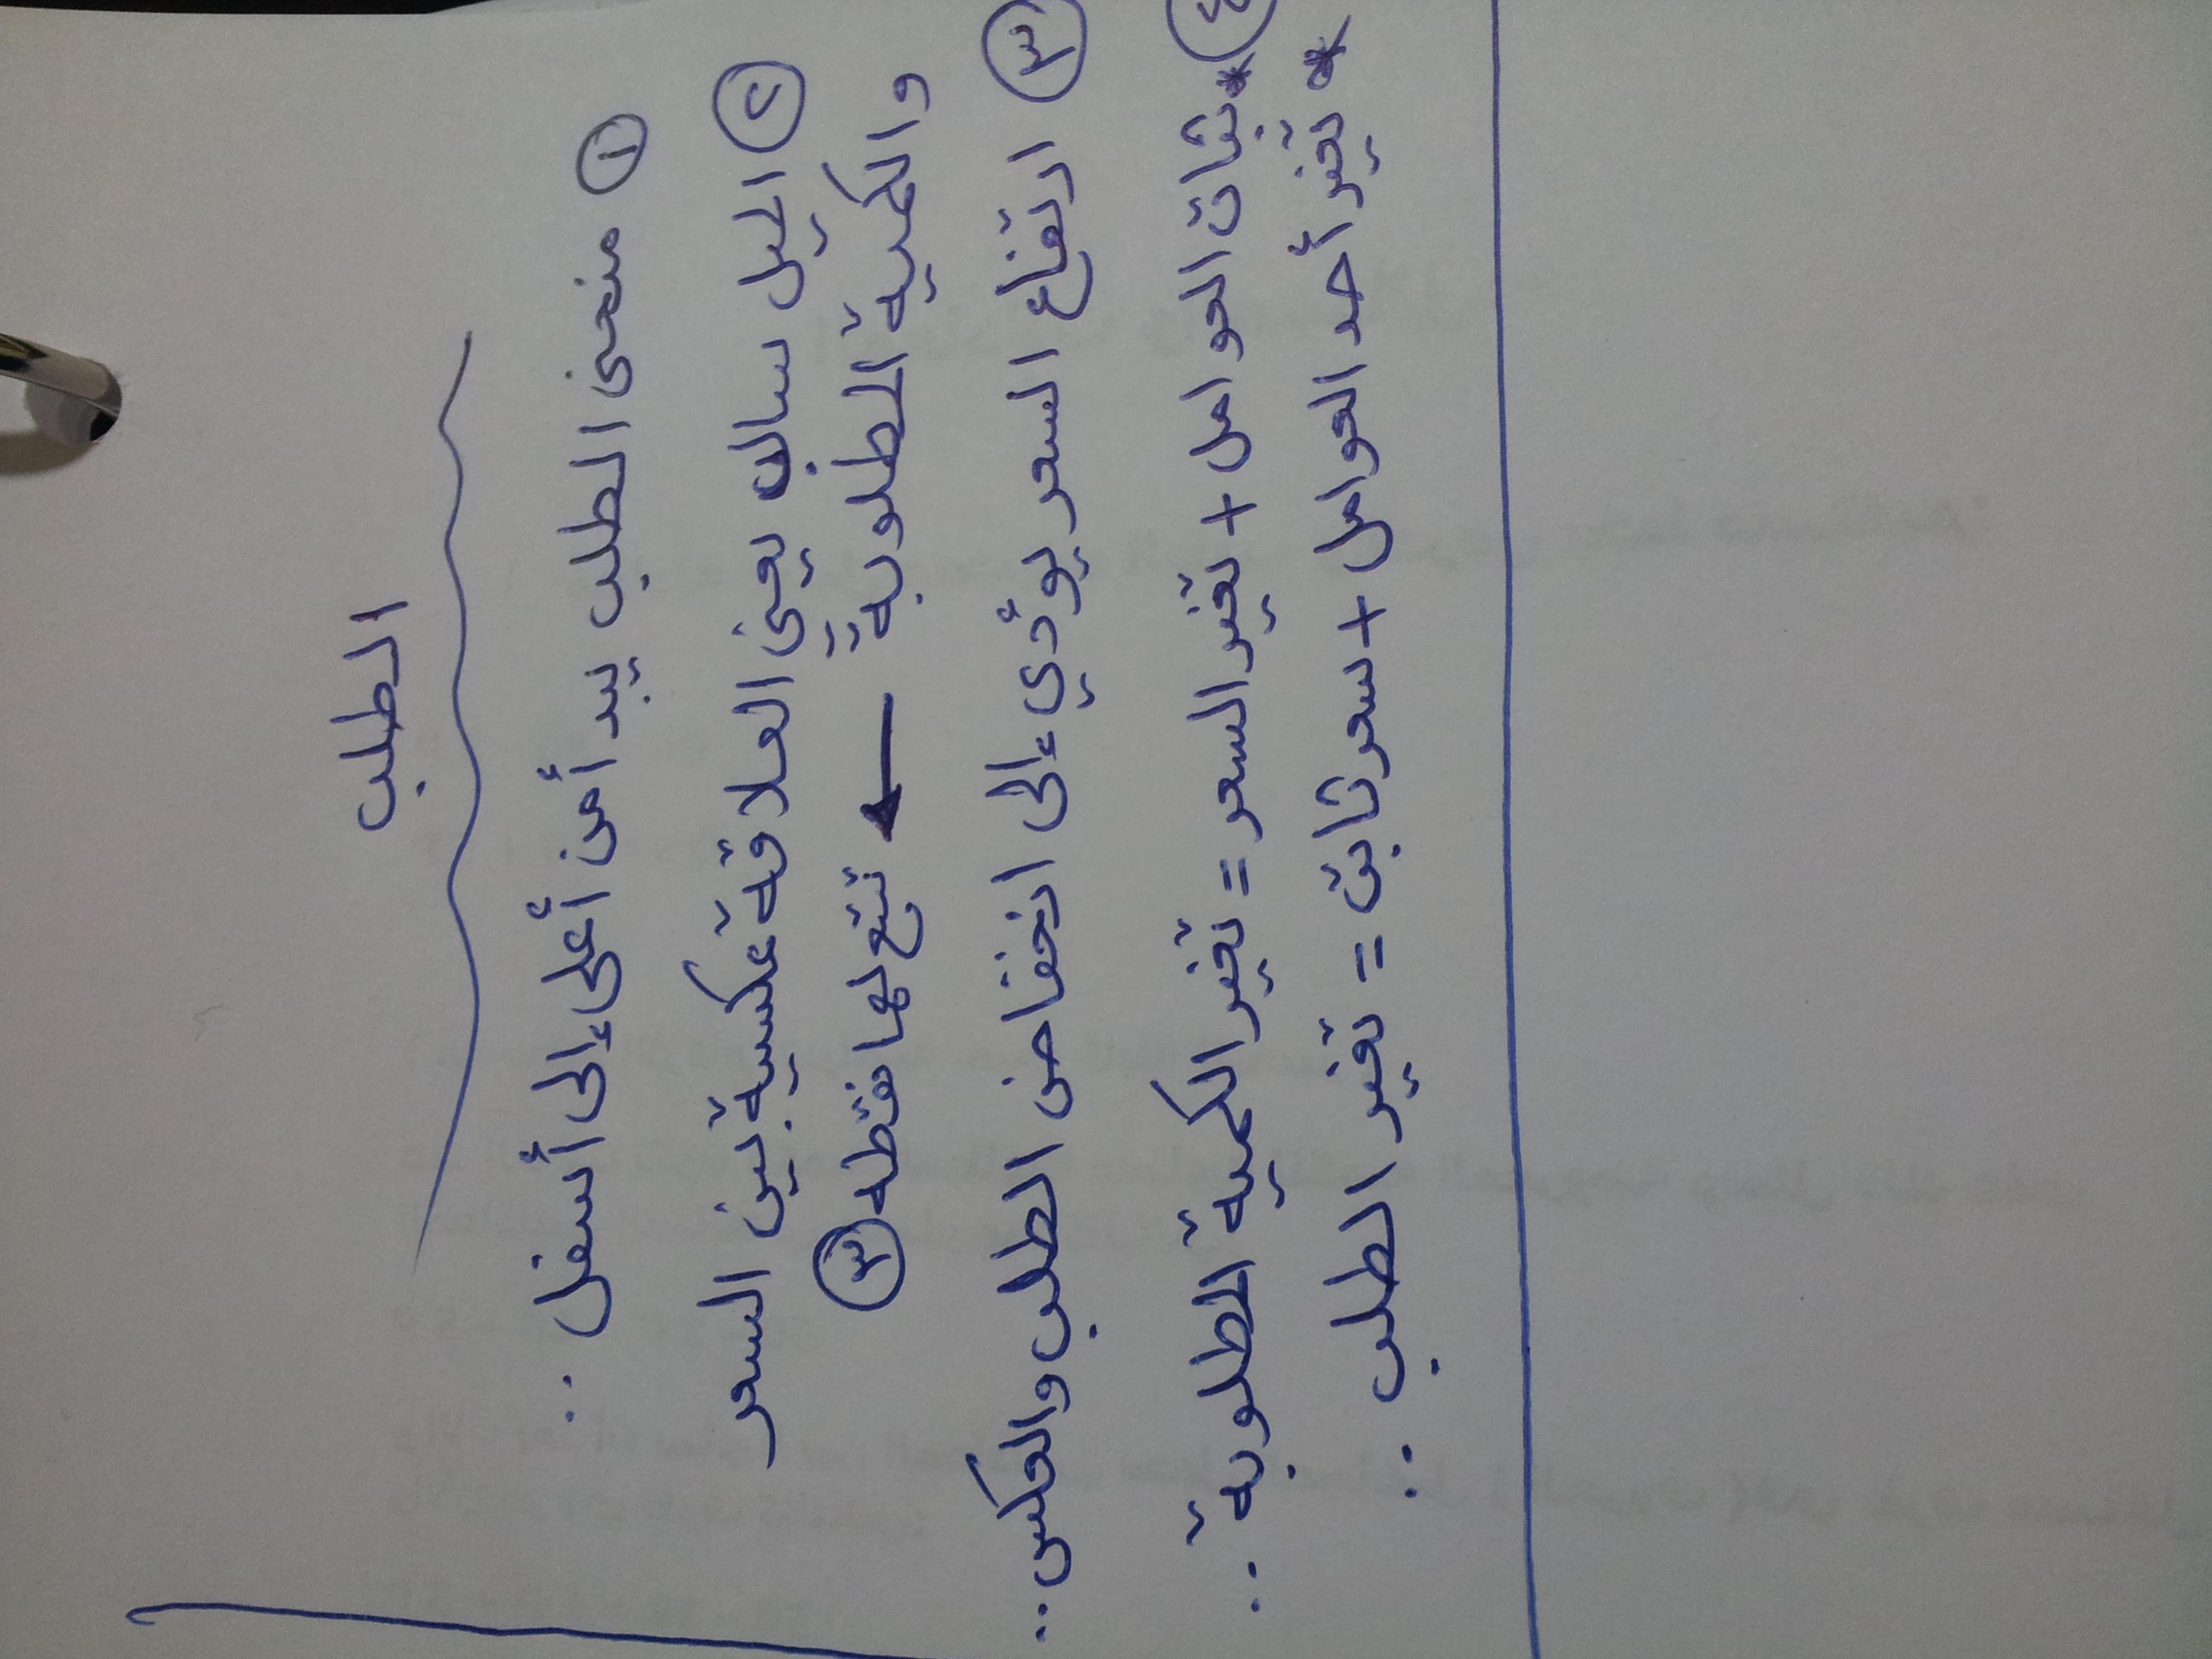 الطلب
① منحنى الطلب يبدأ من أعلى إلى أسفل ..
② الميل سالب يعني العلاقة عكسية بين السعر
والكمية المطلوبة ← تتبع لها نقطه ③
③ ارتفاع السعر يؤدي إلى انخفاض الطلب والعكس ..
④ * ثبات العوامل + تغير السعر = تغير الكمية المطلوبة ..
* تغير أحد العوامل + سعر ثابت = تغير الطلب ..